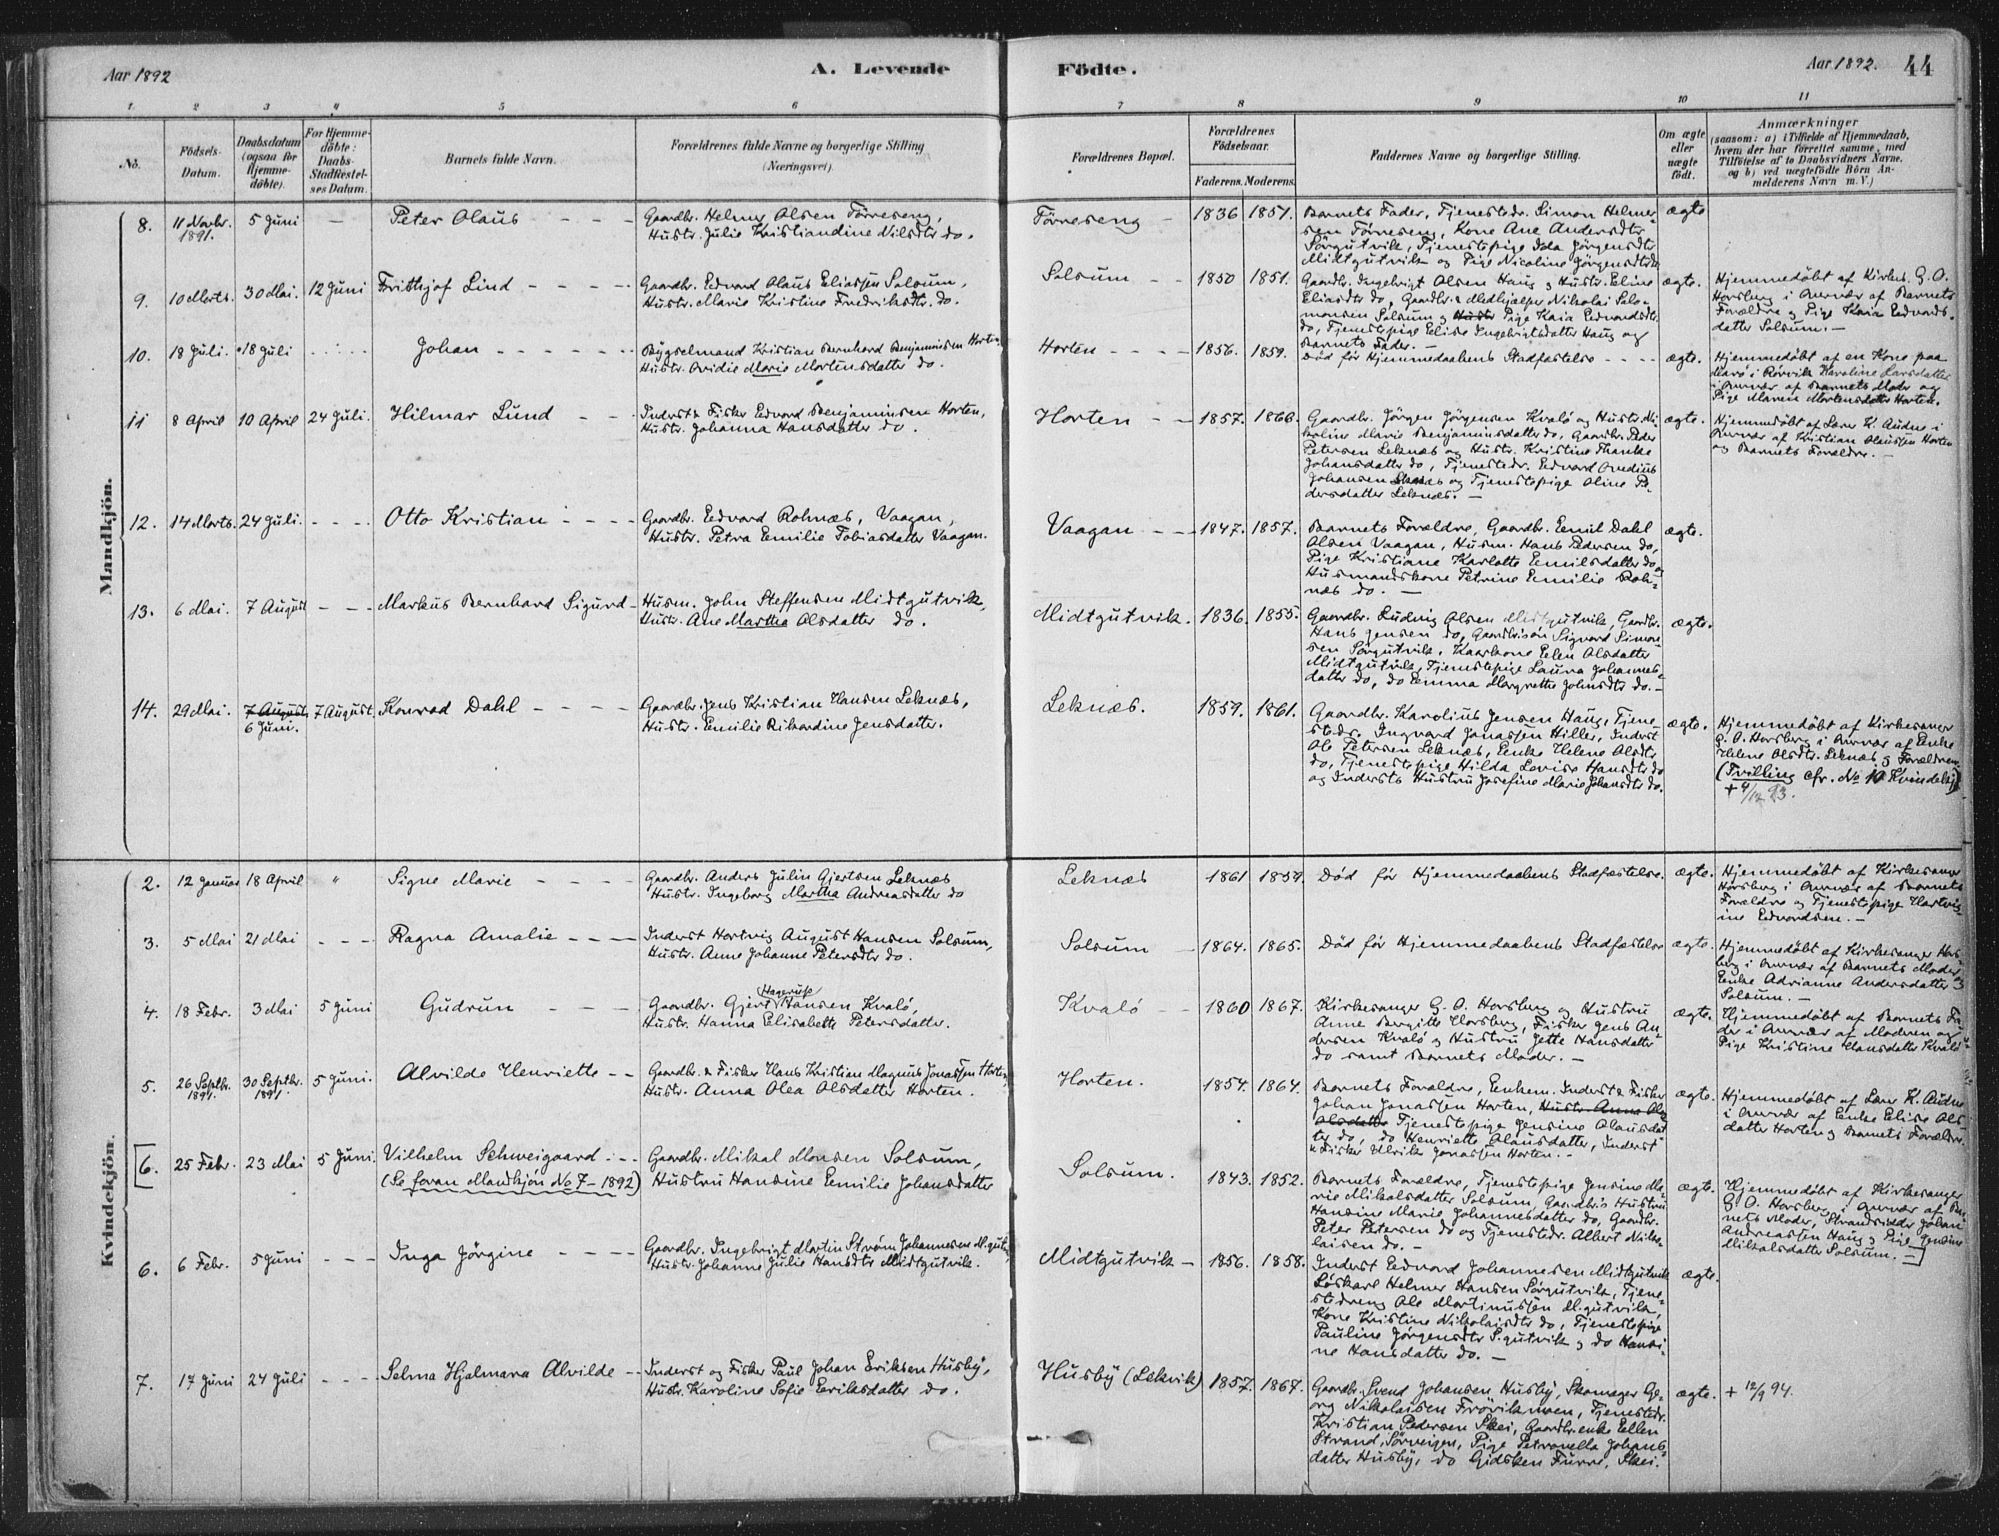 Aar 1892
A. Levende
Födte.
Aar 1892.
44
1. 2 3 4 5 6 7 8 9 10 11
No.
Födsels-
Datum.
Daabsdatum
(ogsaa for
Hjemme-
döbte).
For Hjemme-
döbte:
Daabs-
Stadfæstel-
ses Datum.
Barnets fulde Navn.
Forældrenes fulde Navne og borgerlige Stilling
(Næringsvei).
Forældrenes Bopæl.
Forældrenes
Födselsaar.
Faderens. Moderens.
Faddernes Navne og borgerlige Stilling.
Om ægte
eller
uægte
födt.
Anmærkninger
(saasom: a) i Tilfælde af Hjemmedaab,
hvem der har forrettet samme, med
Tilföielse af to Daabsvidners Navne,
og b) ved uægtefödte Börn An-
melderens Navn m. V.)
Mandkjön.
8. 11 Novbr. 1891. 5 Juni — Peter Olaus
Gaardbr. Helmer Olsen Törreseng,
Hustr. Julie Kristiandine Nilsdtr do.
Törreseng 1836 1851.
Barnets Fader, Tjenestedr. Simon Helmer-
sen Törreseng, Kone Ane Andersdtr
Sörgutvik, Tjenestepige Ida Jörgensdtr
Midtgutvik og Pige Nicoline Jörgensdtr do
ægte
9. 10 Marts. 30 Mai. 12 Juni Frithjof Lind
Gaardbr. Edvard Olaus Eliassen Solsum,
Hustr. Marie Kristine Fredriksdtr. do.
Solsum 1850 1851.
Gaardb. Ingebrigt Olsen Haug og Hustr. Eline
Eliasdtr do, Gaardbr. & Medhjælper Nikolai Salo-
monsen Solsum og Hustr Pige Kaia Edvardsdtr.
do, Tjenestepige Elise Ingebrigtsdatter Haug og
Barnets Fader. —
ægte.
Hjemmedöbt af Kirkes. G. O.
Horsberg i Nærvær af Barnets
Forældre og Pige Kaia Edvards-
datter Solsum. —
10. 18 Juli. 18 Juli Johan
Bygselmand Kristian Bernhard Benjaminsen Horten
Hustr. Ovidie Marie Mortensdatter do.
Horten 1856. 1859.
Död för Hjemmedaabens Stadfæstelse
ægte.
Hjemmedöbt af en Kone paa
Marö i Rörvik Karoline Larsdatter
i Nærvær af Barnets Moder og
Pige Maren Mortensdatter Horten.
11 8 April 10 April 24 Juli. Hilmar Lund
Inderst & Fisker Edvard Benjaminsen Horten,
Hustr. Johanna Hansdatter do.
Horten 1857. 1866.
Gaardbr. Jörgen Jörgensen Kvalö og Hustr. Ni-
koline Marie Benjaminsdatter do, Gaardbr. Peder
Petersen Leknæs og Hustr. Kristine Thanke
Johansdatter do, Tjenestedr. Edvard Ovedius
Johansen og Tjenestepige Oline Pe-
dersdatter Leknæs. —
ægte.
Hjemmedöbt af Lærer K. Audne i
Nærvær af Kristian Olaussen Horten
og Barnets Forældre. —
12. 14 Marts. 24 Juli. Otto Kristian
Gaardbr. Edvard Rohnæs, Vaagan,
Hustr. Petra Emilie Tobiasdatter Vaagan.
Vaagan 1847. 1857.
Barnets Forældre, Gaardbr. Emil Dahl
Olsen Vaagan, Husm. Hans Pedersen do,
Pige Kristiane Karlotte Emilsdatter do og
Husmandskone Petrine Emilie Roh-
næs do. —
ægte.
13. 6 Mai. 7 August Markus Bernhard Sigurd
Husm. John Steffensen Midtgutvik,
Hustr. Ane Martha Olsdatter do.
Midtgutvik. 1836. 1855.
Gaardbr. Ludvig Olsen Midtgutvik, Gaardbr.
Hans Jensen do, Gaardbrsön Sigvard Simon-
sen Sörgutvik, Kaarkone Elen Olsdatter
Midtgutvik, Tjenestepige Laura Johannes-
datter do, do Emma Margrethe Johnsdtr do. —
ægte.
14. 29 Mai. 7 August, 6 Juni. 7 August. Konrad Dahl
Gaardbr. Jens Kristian Hansen Leknæs,
Hustr. Emilie Rikardine Jensdatter.
Leknæs. 1859. 1861.
Gaardbr. Karolius Jensen Haug, Tjene-
stedr. Ingvard Jonassen Hiller, Inderst
Ole Petersen Leknæs, Enke Helene Olsdtr
do, Tjenestepige Hilda Lovise Hansdtr do
og Inderts Hustru Josefine Marie Johansdtr do.
ægte.
Hjemmedöbt af Kirkesanger
G. O. Horsberg i Nærvær af Enke
Helene Olsdtr. Leknæs og Forældrene
(Tvilling cfr. No 10 Kvindekj)
+ 4/12 93.
Kvindekjön.
2. 12 Januar 18 April " Signe Marie
Gaardbr. Anders Julin Gjertsen Leknæs
Hustr. Ingeborg Martha Andreasdatter do
Leknæs 1861 1859.
Död för Hjemmedaabens Stadfæstelse.
ægte.
Hjemmedöbt af Kirkesanger
Horsberg i Nærvær af Barnets
Forældre og Tjenestepige Hartvig-
ine Edvardsen. —
3. 5 Mai 21 Mai Ragna Amalie
Inderst Hartvig August Hansen Solsum,
Hustr. Anne Johanne Petersdtr do.
Solsum 1864. 1865.
Död för Hjemmedaabens Stadfæstelse
ægte.
Hjemmedöbt af Kirkesanger Hors-
berg i Nærvær af Barnets Moder og
Enke Adrianne Andersdatter
Solsum. —
4. 18 Febr. 3 Mai 5 Juni Gudrun
Gaardbr. Gjert Hagerup Hansen Kvalö,
Hustr. Hanna Elisabette Petersdatter.
Kvalö 1860 1867.
Kirkesanger G. O. Horsberg og Hustru
Anne Bergitte Horsberg, Fisker Jens An-
dersen Kvalö og Hustru Jette Hansdatter
do samt Barnets Moder. —
ægte.
Hjemmedöbt af Barnets Fa-
der i Nærvær af Moderen og
Pige Kristine Hansdatter Kvalö
5. 26 Septbr. 1891. 30 Septbr. 1891 5 Juni. Alvilde Henriette
Gaardbr. & Fisker Hans Kristian Magnus Jonassen Horten,
Hustr. Anna Olea Olsdatter Horten.
Horten. 1854. 1864.
Barnets Forældre, Enkem. Inderst & Fisker
Johan Jonassen Horten, Hustr. Anna Olea
Olsdatter Tjenestepige Jensine Olausdat-
ter do, do Henriette Olausdatter, Inderst
& Fisker Ulrik Jonassen Horten. —
ægte.
Hjemmedöbt af Lærer K. Audne
i Nærvær af Enke Elise Ols-
datter Horten og Barnets Forældre.
[6.] 25 Febr. 23 Mai 5 Juni. Vilhelm Schweigaard
(Se foran Mandkjön No 7 — 1892)
Gaardbr. Mikal Monsen Solsum,
Hustru Hansine Emilie Johansdatter
Solsum. 1843. 1852.
Barnets Forældre, Tjenestepige Jensine Ma-
rie Mikalsdatter Solsum, Gaardbr's Hustru
Hansine Marie Johannesdatter do, Gaardbr.
Peter Petersen do og Tjenestedr. Albert Niko-
laisen do. —
ægte.
Hjemmedöbt af Kirkesanger
G. O. Horsberg i Nærvær af Bar-
nets Moder, Strandsidder Johan
Andreassen Haug og Pige Jensine
Mikalsdatter Solsum. —]
6. 6 Febr. 5 Juni Inga Jörgine
Gaardbr. Ingebrigt Martin Ström Johannesen M.gutvik,
Hustr. Johanne Julie Hansdtr Midtgutvik.
Midtgutvik — 1856. 1858.
Inderst Edvard Johannesen Midtgutvik
Löskarl Helmer Hansen Sörgutvik, Tjene-
stedreng Ole Martinussen M.gutvik,
Kone Kristine Nikolaisdtr do, Tjenestepige
Pauline Jörgensdtr S.gutvik og do Hansi-
ne Hansdatter do. —
ægte.
7. 17 Juni 24 Juli Selma Hjalmara Alvilde
Inderst og Fisker Paul Johan Eriksen Husby,
Hustr. Karoline Sofie Eriksdatter do.
Husby (Lekvik) 1857. 1867.
Gaardbr. Svend Johansen Husby, Skomager Ge-
org Nikolaisen Frövikmoen, Tjenestedr.
Kristian Pedersen Skei, Gaardbr.enke Ellen
Strand, Sörveigen, Pige Petronella Johans-
datter Husby, do Gidsken Furre, Skei.
ægte.
+ 12/9 94.